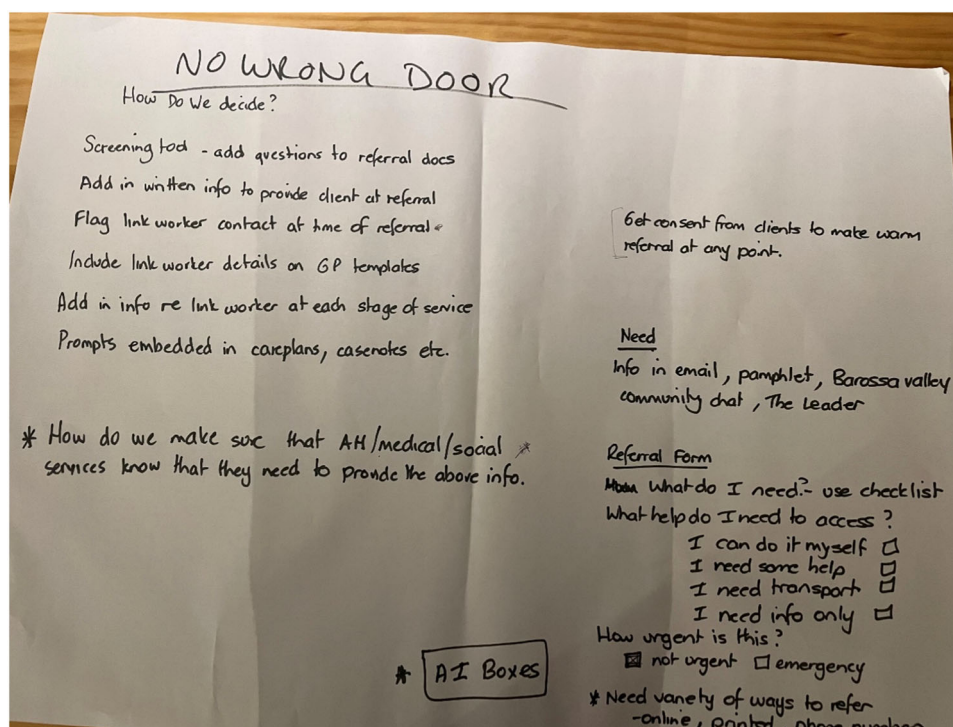 NO WRONG DOOR
How Do We decide?
Screening tool - add questions to referral docs
Add in written info to provide client at referral
Flag link worker contact at time of referral
Include link worker details on GP templates
Add in info re link worker at each stage of service
Prompts embedded in careplans, casenotes etc.
* How do we make sure that AH/medical/social *
services know that they need to provide the above info.
* AI Boxes
Get consent from clients to make warm
referral at any point.
Need
Info in email, pamphlet, Barossa valley
community chat, The Leader
Referral Form
What do I need? - use checklist
What help do I need to access?
I can do it myself ☐
I need some help ☐
I need transport ☐
I need info only ☐
How urgent is this?
☒ not urgent ☐ emergency
* Need variety of ways to refer
- online, printed, phone number